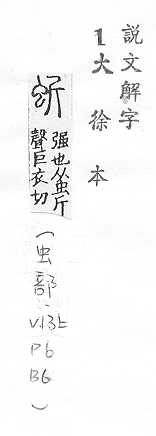 說文解字
1大徐本
蚚
强也从虫斤
聲巨衣切
(虫部·V.13上
P6
B6)